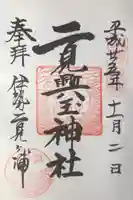 平成廿五年十一月二日
二見興玉神社
奉拝
伊勢二見ヶ浦